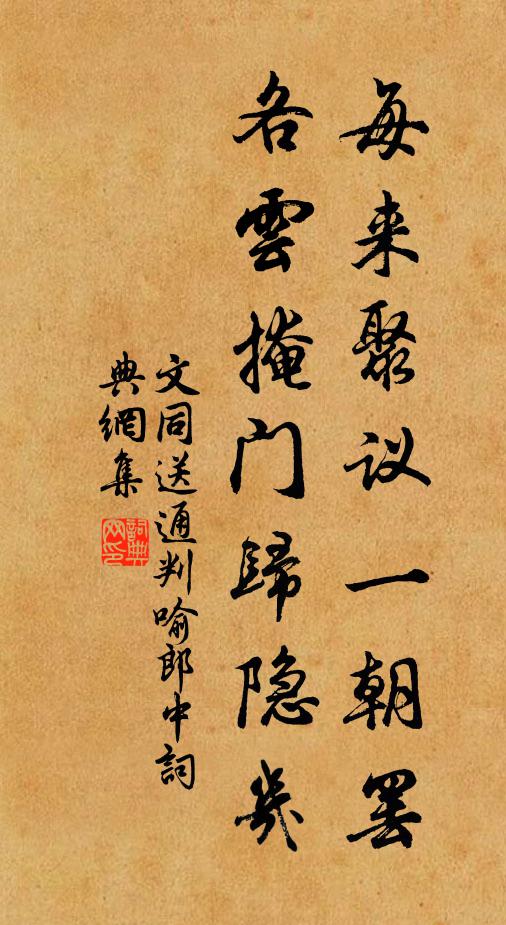 每来聚议一朝罢
各雲掩门歸隐几
文同送通判喻郎中詞
典網集
詞典网印